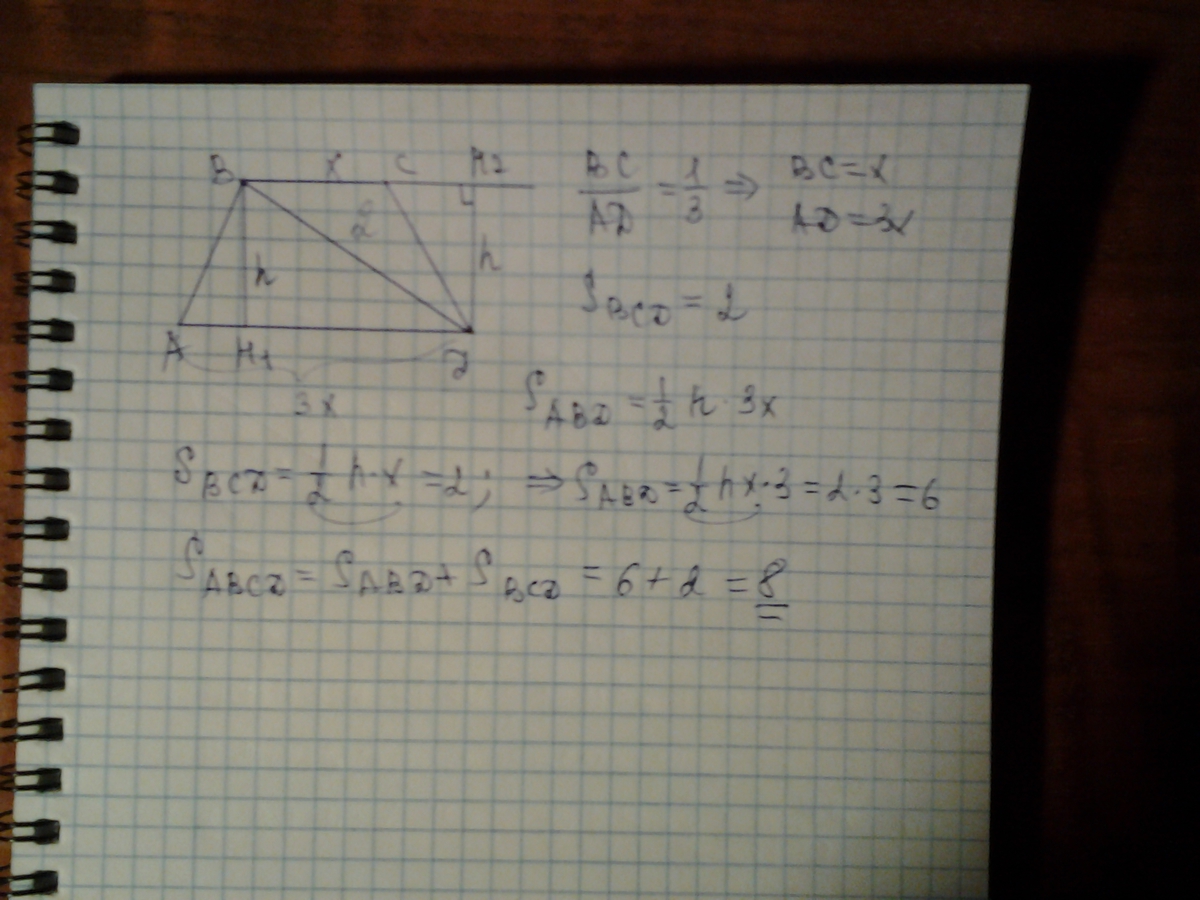 B x C H2
2
h h
A H1 D
3x
BC/AD = 1/3 ⇒ BC = x
AD = 3x
S BCD = 2
S ABD = 1/2 h · 3x
S BCD = 1/2 h · x = 2; ⇒ S ABD = 1/2 h x · 3 = 2 · 3 = 6
S ABCD = S ABD + S BCD = 6 + 2 = 8